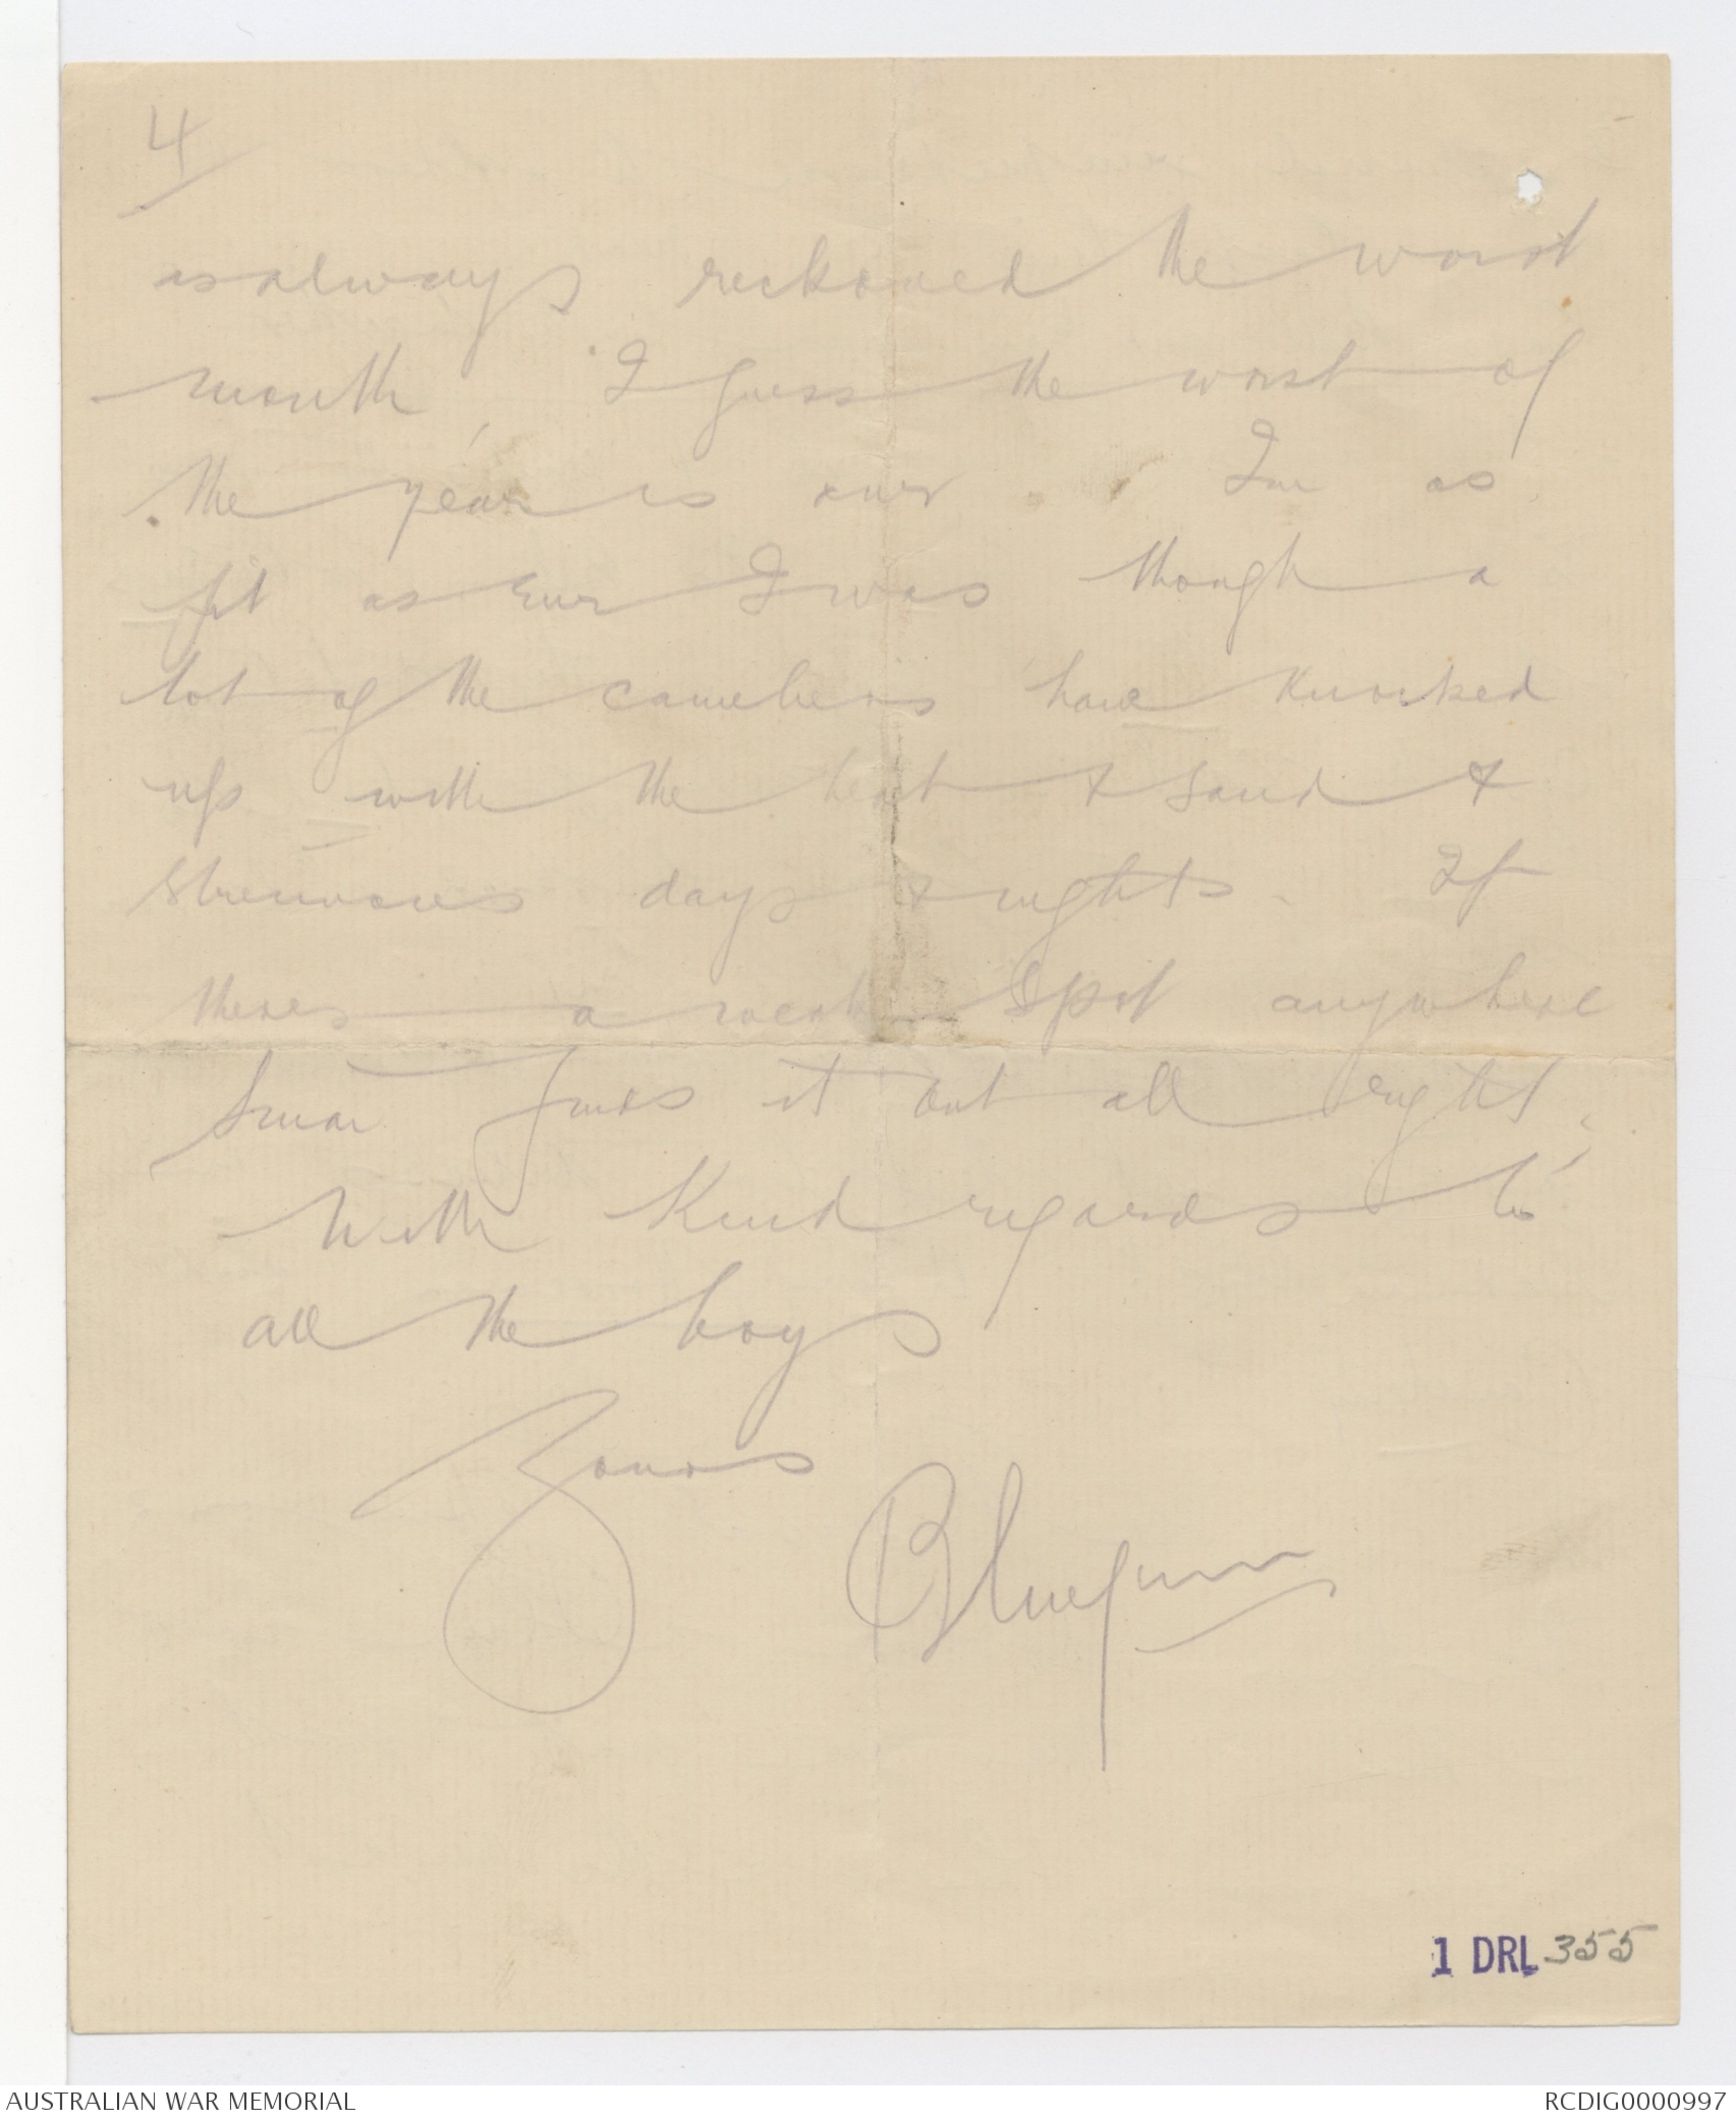 4
is always reckoned the worst
month, I guess the worst of
the year is over. Im as
fit as ever I was though a
lot of the cameliers have knocked
up with the heat & sand &
strenuous days & nights. If
theres a weak spot anywhere
Sinai finds it out all right,
With Kind regards to
all the boys
Yours
Bluegum
1 DRL 355
AUSTRALIAN WAR MEMORIAL
RCDIG0000997